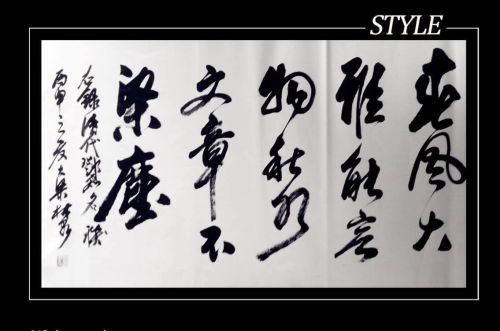 STYLE
春風大
雅能容
物秋水
文章不
染塵
右錄清代鄧石如名聯
丙申之夏大梁